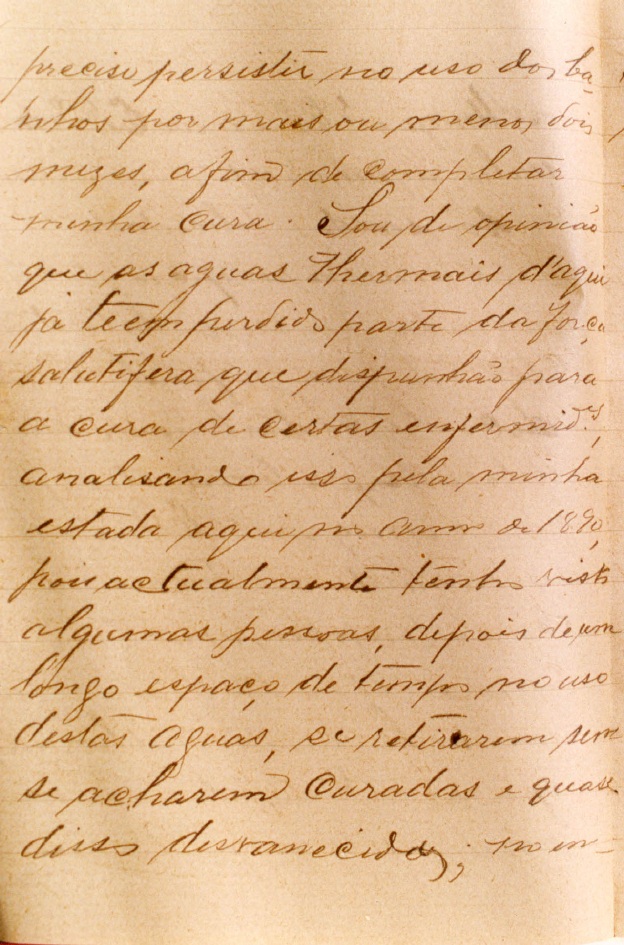 preciso persistir no uso dos ba-
nhos por mais ou menos dois
mezes, afim de completar
minha cura. Sou de opinião
que as aguas Thermais d'aqui
já teem perdido parte da força
salutifera que dispunhão para
a cura de certas enfermid.es,
analisando isso pela minha
estada aqui no anno de 1890,
pois actualmente tenho visto
algumas pessoas, depois de um
longo espaço de tempo no uso
destas aguas, se retirarem sem
se acharem curadas e quase
disso desvanecidas; no en-